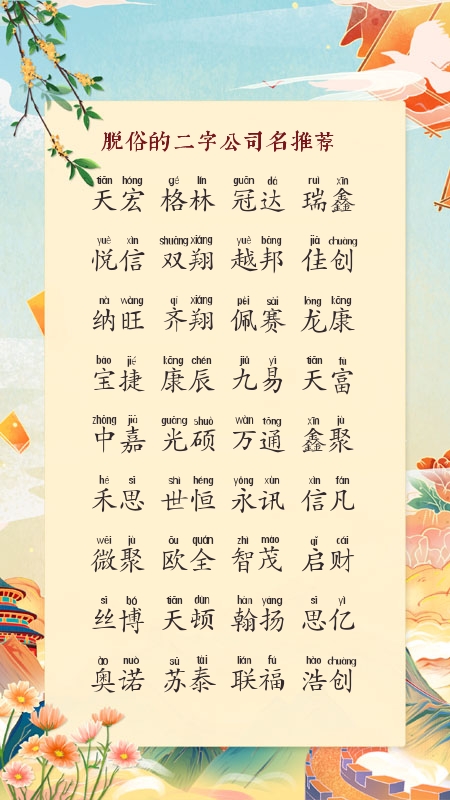 脱俗的二字公司名推荐
tiān hóng gé lín guān dá ruì xīn
天宏 格林 冠达 瑞鑫
yuè xìn shuāng xiáng yuè bāng jiā chuàng
悦信 双翔 越邦 佳创
nà wàng qí xiáng pèi sài lóng kāng
纳旺 齐翔 佩赛 龙康
bǎo jié kāng chén jiǔ yì tiān fù
宝捷 康辰 九易 天富
zhōng jiā guāng shuò wàn tōng xīn jù
中嘉 光硕 万通 鑫聚
hé sī shì héng yǒng xùn xìn fán
禾思 世恒 永讯 信凡
wēi jù ōu quán zhì mào qǐ cái
微聚 欧全 智茂 启财
sī bó tiān dùn hàn yáng sī yì
丝博 天顿 翰扬 思亿
ào nuò sū tài lián fú hào chuàng
奥诺 苏泰 联福 浩创